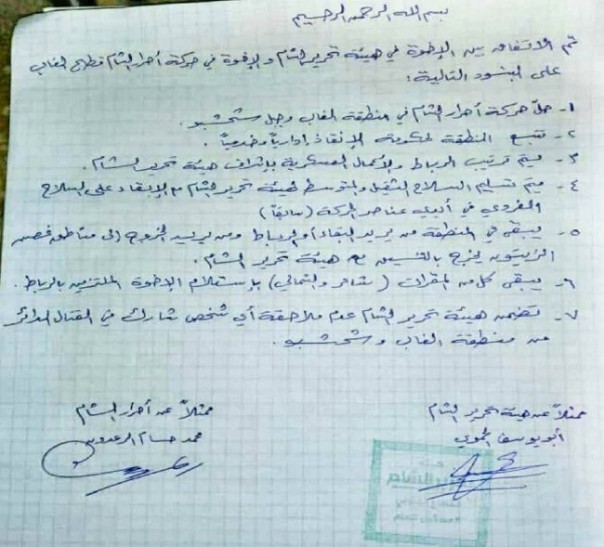 بسم الله الرحمن الرحيم
تم الاتفاق بين الإخوة في هيئة تحرير الشام والإخوة في حركة أحرار الشام قطاع الغاب
على البنود التالية:
١- حلّ حركة أحرار الشام في منطقة الغاب وجبل شحشبو.
٢- تتبع المنطقة لحكومة الإنقاذ إدارياً وخدمياً.
٣- يتم ترتيب الرباط والأعمال العسكرية بإشراف هيئة تحرير الشام.
٤- يتم تسليم السلاح الثقيل والمتوسط لهيئة تحرير الشام مع الإبقاء على السلاح
الفردي في أيدي عناصر الحركة (سابقاً)
٥- يبقى في المنطقة من يريد البقاء أو الرباط ومن يريد الخروج إلى مناطق غصن
الزيتون يخرج بالتنسيق مع هيئة تحرير الشام.
٦- يبقى كل من المقرات (شاهر والشمالي) بإستلام الإخوة الملتزمين بالرباط.
٧- تضمن هيئة تحرير الشام عدم ملاحقة أي شخص شارك في القتال الدائر
من منطقة الغاب وشحشبو.
ممثلاً عن هيئة تحرير الشام
أبو يوسف الحموي
ممثلاً عن أحرار الشام
محمد حسام